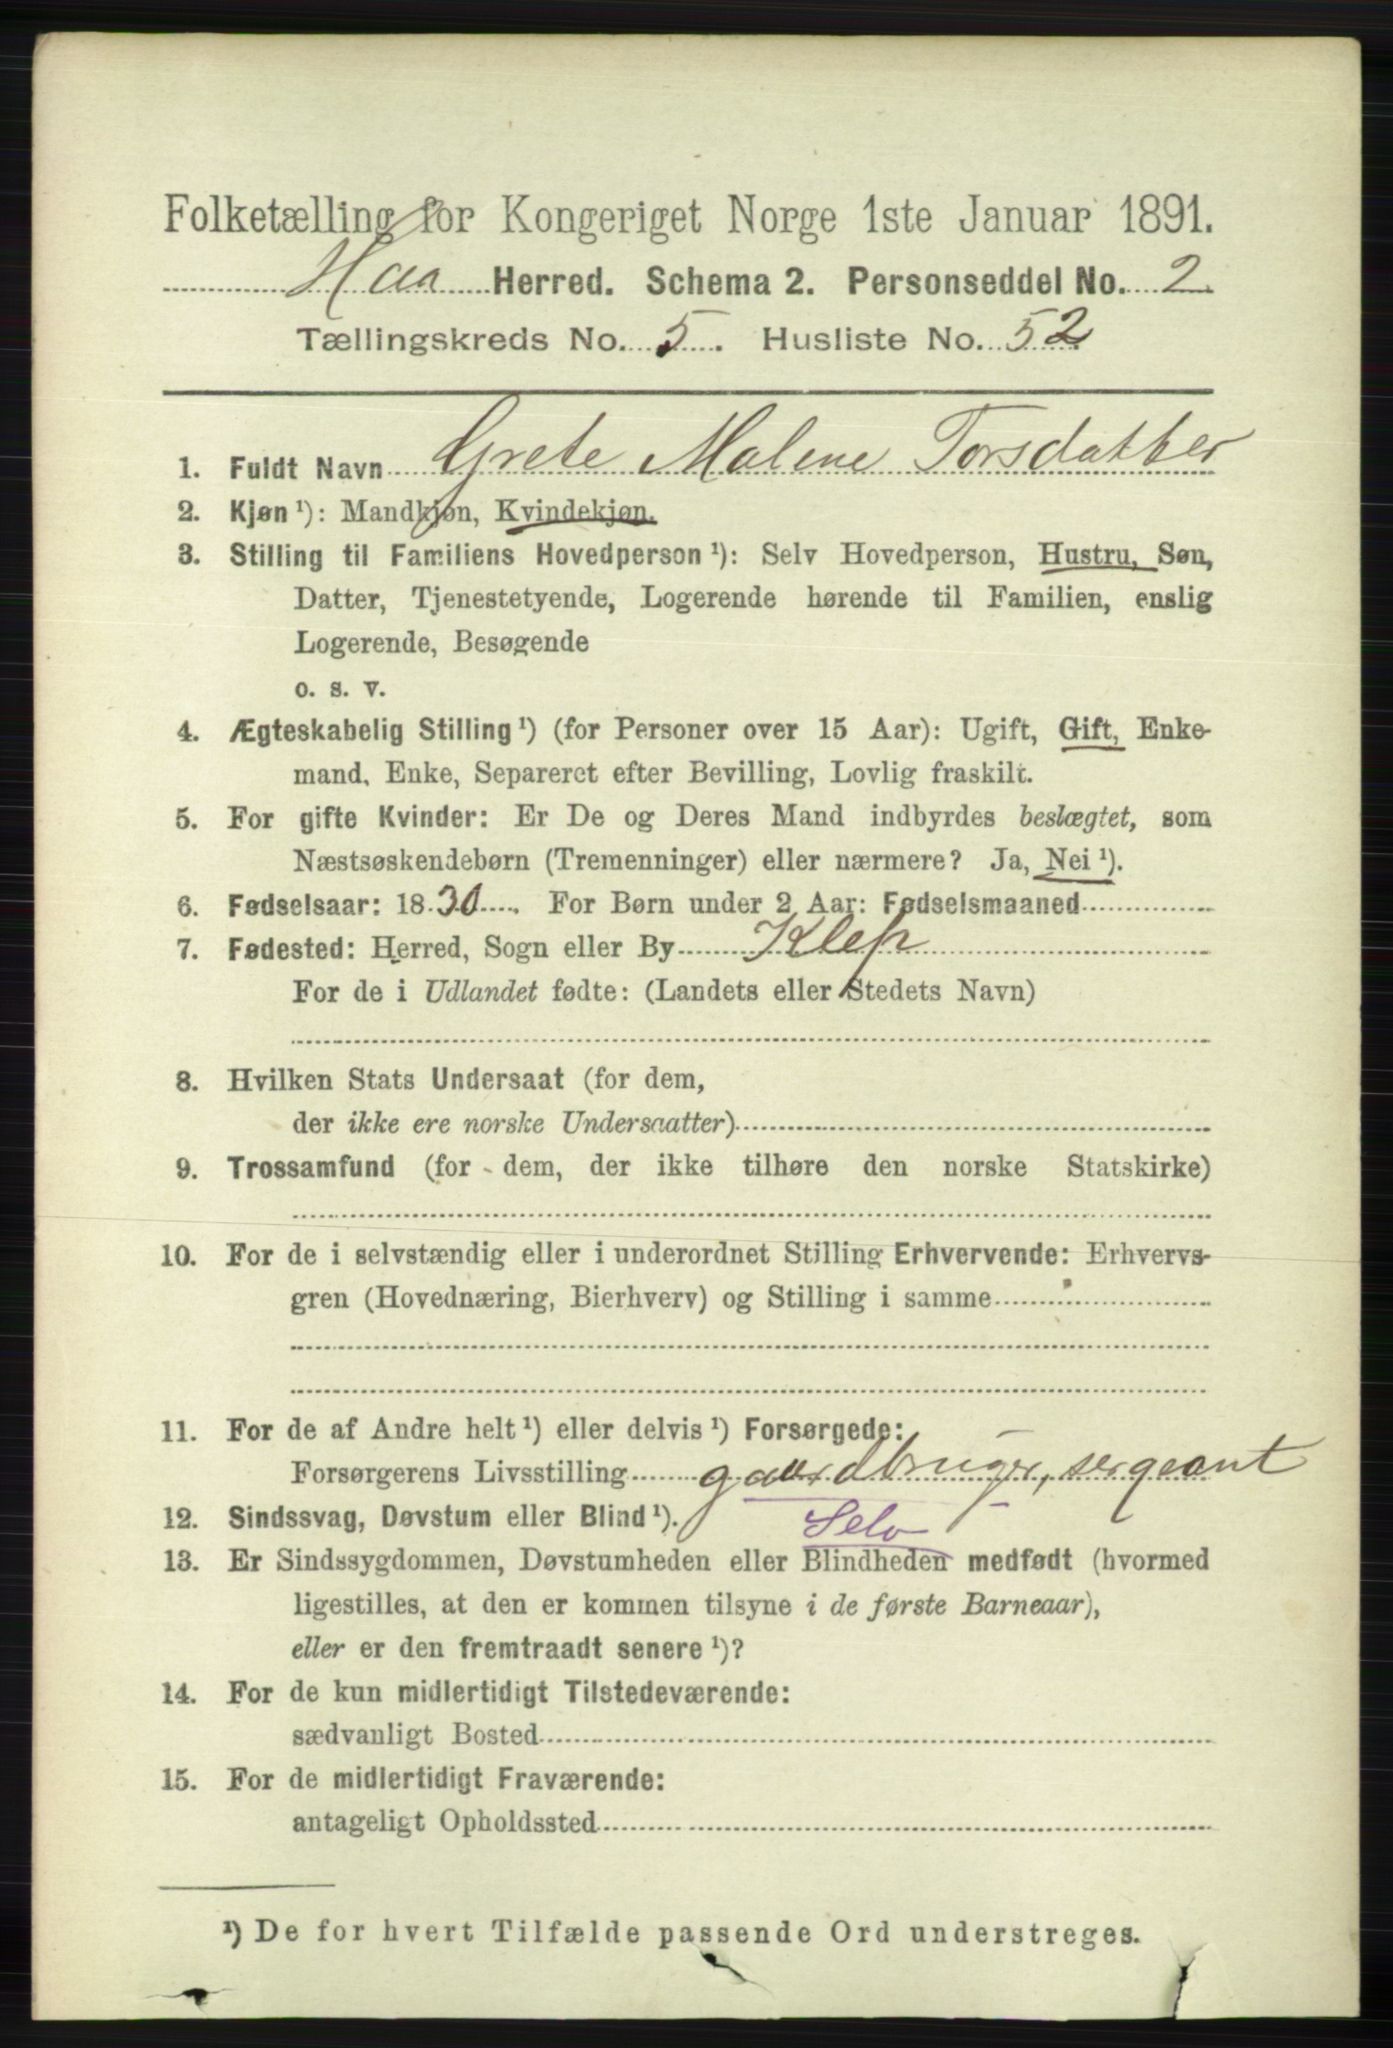 Folketælling for Kongeriget Norge 1ste Januar 1891.
Haa Herred. Schema 2. Personseddel No. 2.
Tællingskreds No. 5. Husliste No. 52
1. Fuldt Navn Grete Malene Torsdatter
2. Kjøn ¹): Mandkjøn, Kvindekjøn.
3. Stilling til Familiens Hovedperson ¹): Selv Hovedperson, Hustru, Søn,
Datter, Tjenestetyende, Logerende hørende til Familien, enslig
Logerende, Besøgende
o. s. v.
4. Ægteskabelig Stilling ¹) (for Personer over 15 Aar): Ugift, Gift, Enke-
mand, Enke, Separeret efter Bevilling, Lovlig fraskilt.
5. For gifte Kvinder: Er De og Deres Mand indbyrdes beslægtet, som
Næstsøskendebørn (Tremenninger) eller nærmere? Ja, Nei ¹).
6. Fødselsaar: 1830. For Børn under 2 Aar: Fødselsmaaned
7. Fødested: Herred, Sogn eller By Klep
For de i Udlandet fødte: (Landets eller Stedets Navn)
8. Hvilken Stats Undersaat (for dem,
der ikke ere norske Undersaatter)
9. Trossamfund (for dem, der ikke tilhøre den norske Statskirke)
10. For de i selvstændig eller i underordnet Stilling Erhvervende: Erhvervs-
gren (Hovednæring, Bierhverv) og Stilling i samme
11. For de af Andre helt ¹) eller delvis ¹) Forsørgede:
Forsørgerens Livsstilling gaardbruger, sergeant
12. Sindssvag, Døvstum eller Blind ¹). Selv
13. Er Sindssygdommen, Døvstumheden eller Blindheden medfødt (hvormed
ligestilles, at den er kommen tilsyne i de første Barneaar),
eller er den fremtraadt senere ¹)?
14. For de kun midlertidigt Tilstedeværende:
sædvanligt Bosted
15. For de midlertidigt Fraværende:
antageligt Opholdssted
¹) De for hvert Tilfælde passende Ord understreges.